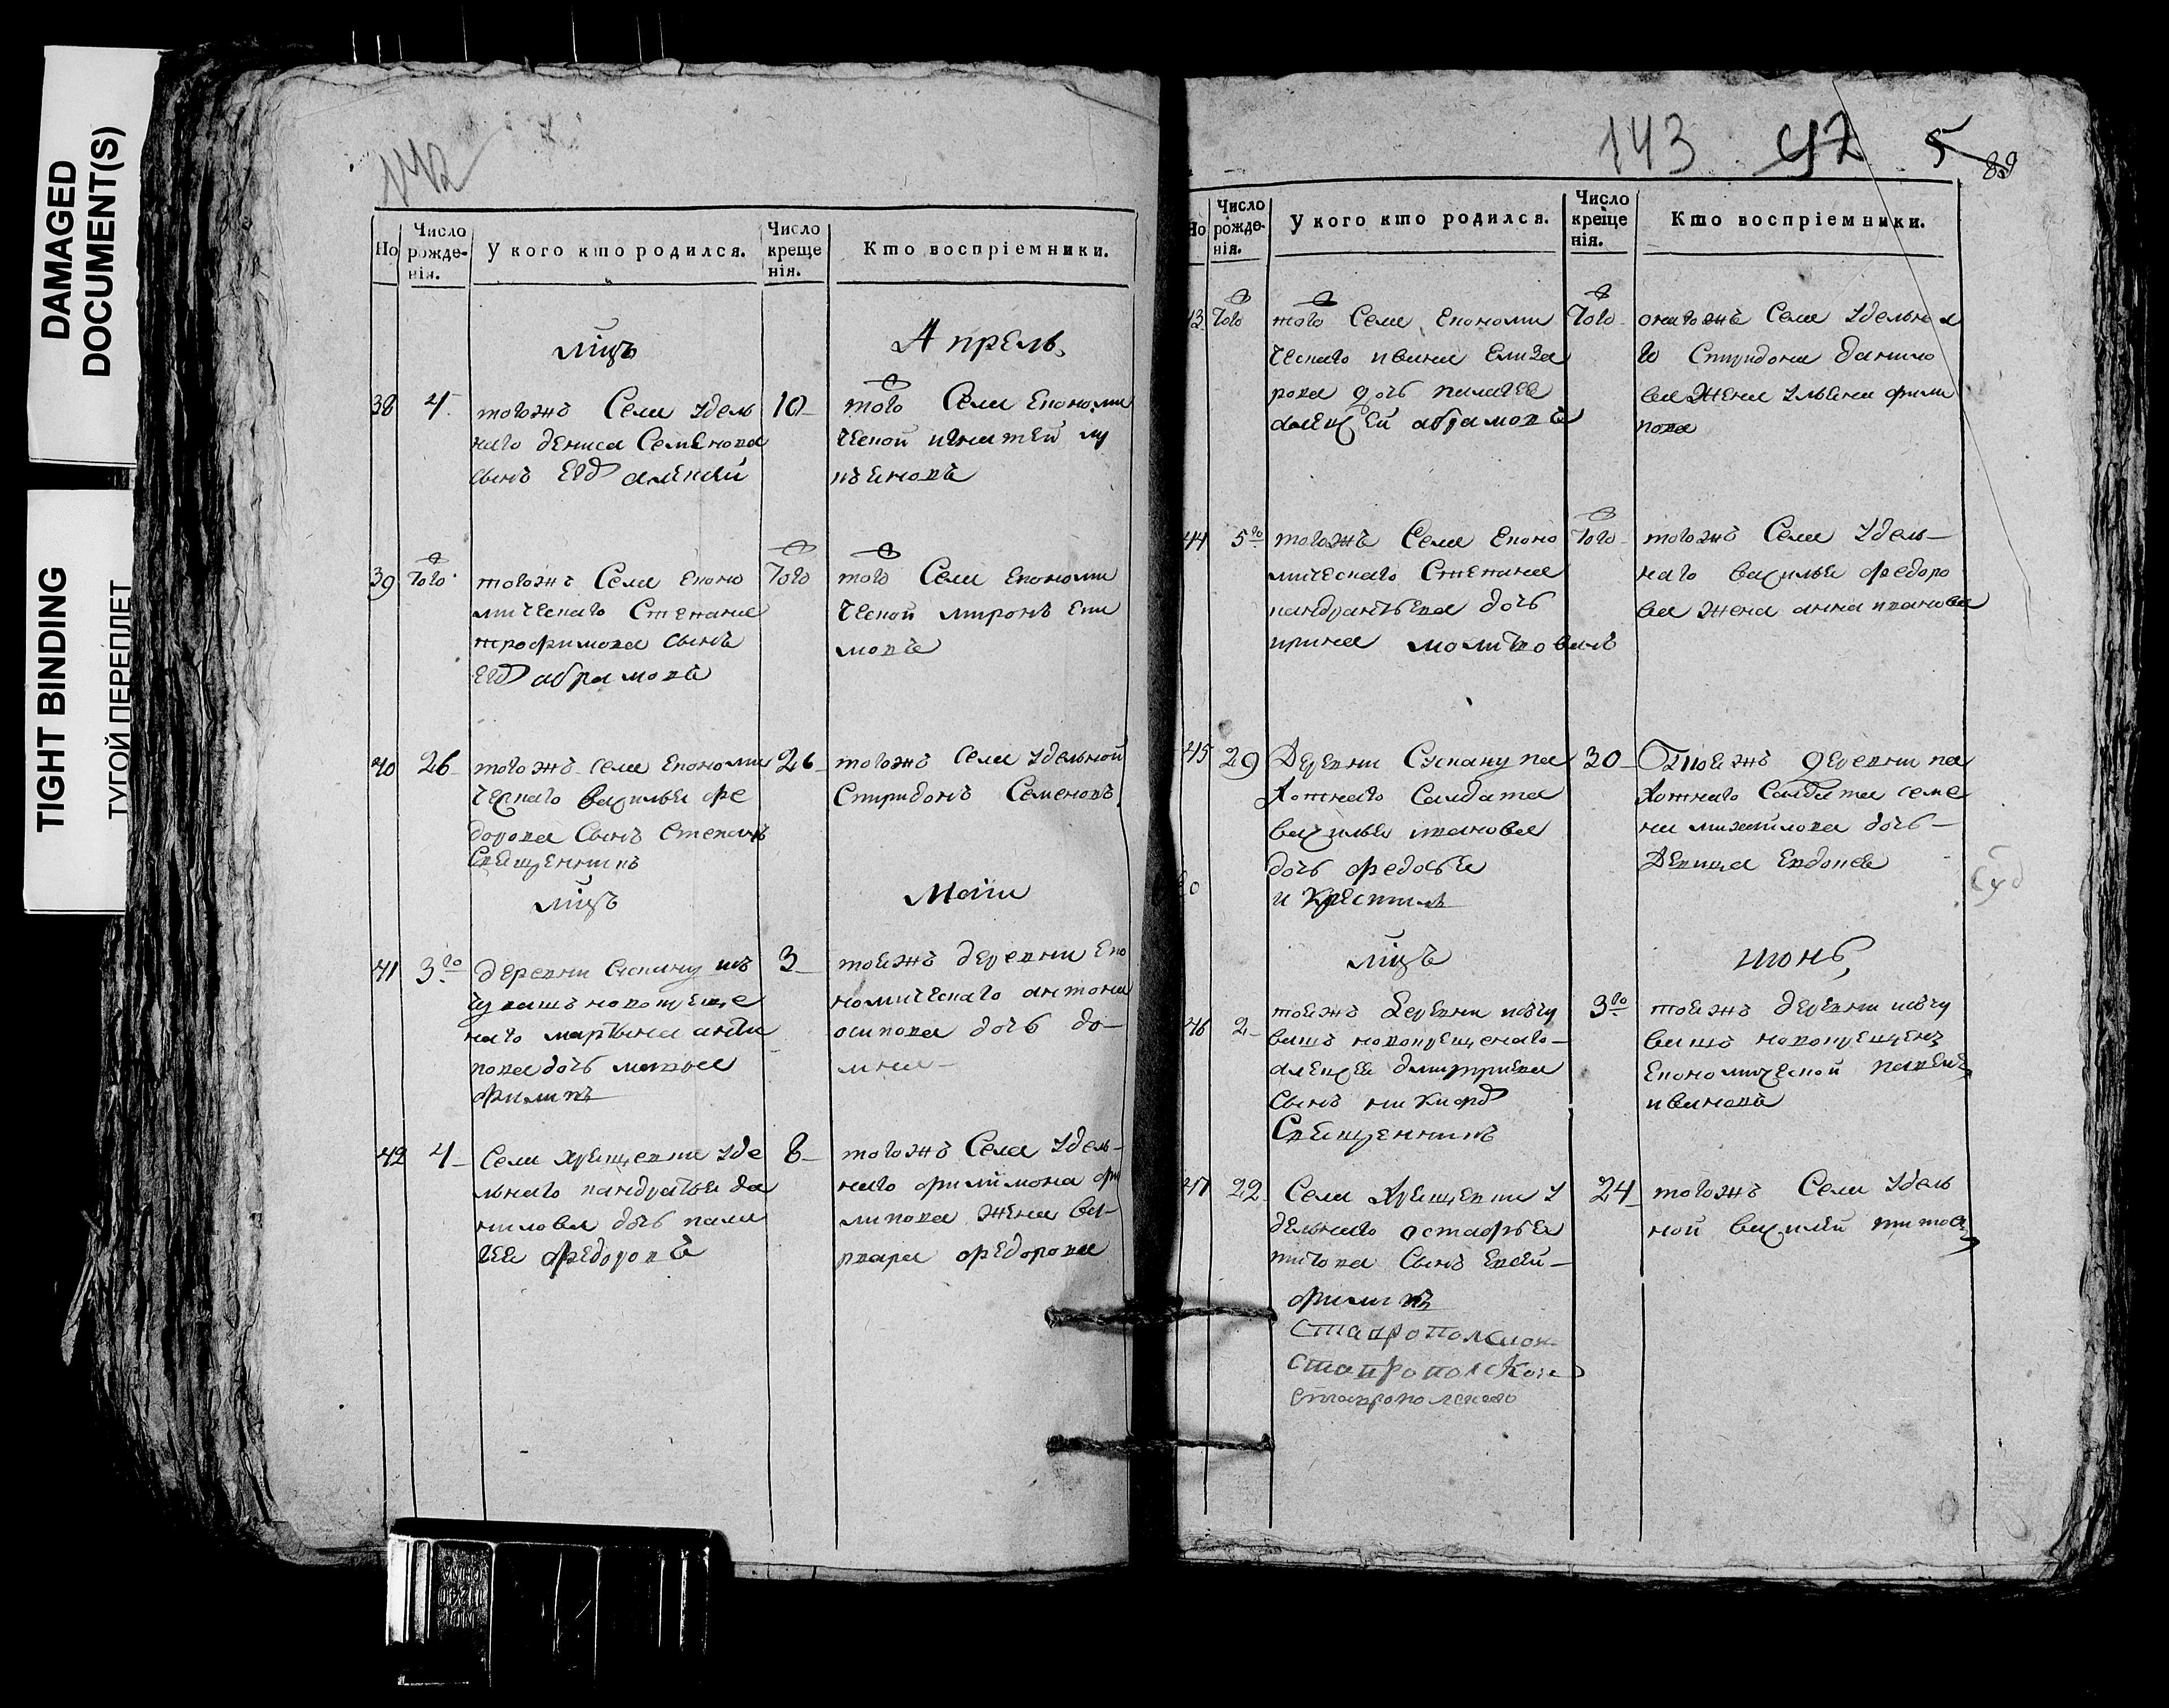 DAMAGED
DOCUMENT(S)
TIGHT BINDING
ТУГОЙ ПЕРЕПЛЕТ
142
Но
Число
рожде-
нія.
У кого кто родился.
Число
креще
нія.
Кто воспріемники.
мцъ
Апрель
38
4
тогожъ Села удель
наго дениса Семенова
сынъ алексей
10
того Села Економи
ческой игнатей лу
кьяновъ
39
того
тогожъ Села еконо
мическаго Степана
трофимова сынъ
абрамовъ
того
того Села економи
ческой миронъ еки
мовъ
40
26
тогожъ села економи
ческаго василья фе
дорова сынъ степанъ
священникъ
26
тогожъ села удельной
Спиридонъ Семеновъ
мцъ
Маiи
41
3го
деревни
чувашъ новокреще
наго мартына анти
пова дочь матрна
филипъ
3
тоежъ деревни еко
номическаго антона
осипова дочь до
мна
42
4
Села хрещевки уде
льнаго кандратья да
нилова дочь пала
гея федоровъ
8
тогожъ Села удель
наго филимона фи
липова жена ва
рвара федорова
143 92 5 89
Но
Число
рожде-
нія.
У кого кто родился.
Число
креще
нія.
Кто воспріемники.
43
того
того Села економи
ческаго ивана елиза
рова дочь палагея
алексей абрамовъ
того
онагожъ Села удельна
го Спиридона данило
ва жена ульяна фили
пова
44
5го
тогожъ Села еконо
мическаго Степана
кандратьева дочь
ирина молитвовалъ
того
тогожъ Села удель
наго василья федоро
ва жена анна иванова
45
29
Деревни па
хотнаго Салдата
василья иванова
дочь федосья
и крестилъ
30
тоежъ деревни па
хотнаго Салдата семе
на михайлова дочь
девица евдокея
мцъ
июнь
46
2
тоежъ деревни изчу
вашъ новокрещенаго
алексея дмитриева
сынъ никифоръ
священникъ
3го
тоежъ деревни изчу
вашъ новокрещенъ
економической павелъ
ивановъ
47
22
Села хрещевки у
дельнаго остафьея
титова сынъ евсей
филипъ
24
тогожъ Села удель
ной василей титовъ
ставрополской
ставрополскаго